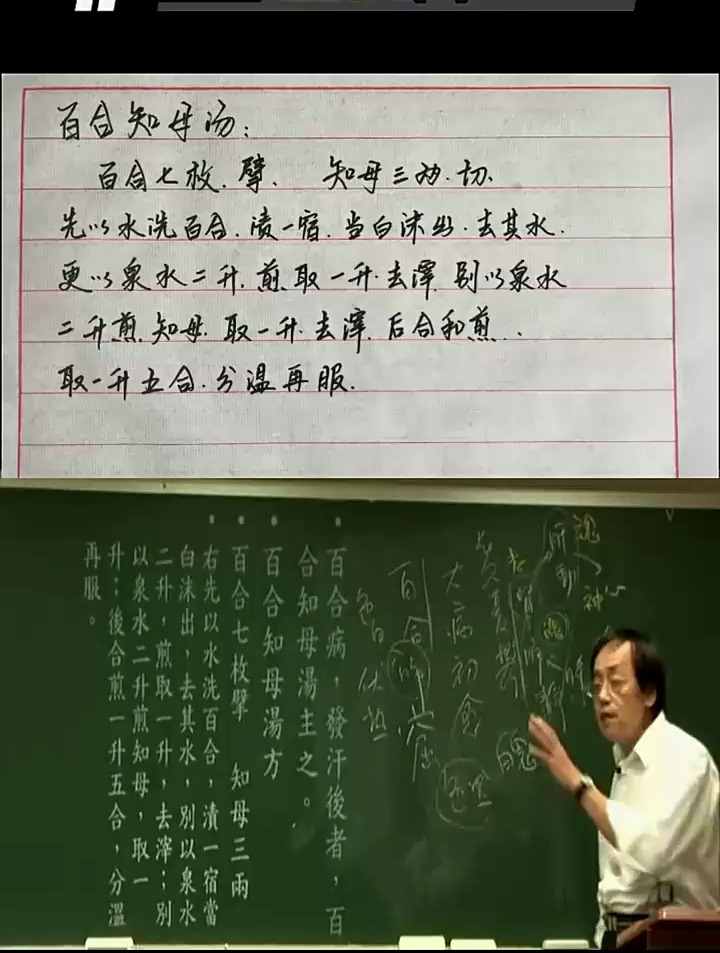 百合知母汤：
百合七枚.擘. 知母三两.切.
先以水洗百合.渍一宿.当白沫出.去其水.
更以泉水二升.煎取一升.去滓.别以泉水
二升煎.知母.取一升.去滓.后合和煎.
取一升五合.分温再服.
百合病，發汗後者，百
合知母湯主之。
百合知母湯方
百合七枚擘 知母三兩
右先以水洗百合，漬一宿當
白沫出，去其水，別以泉水
二升，煎取一升，去滓；別
以泉水二升煎知母，取一
升；後合煎一升五合，分溫
再服。
大病初愈
百合
魂
神